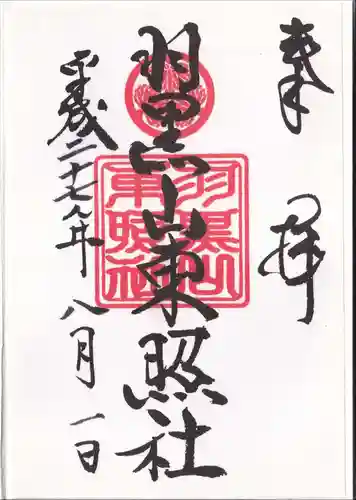 奉拝
羽黒山東照社
羽黒山
東照社
平成二十七年八月一日